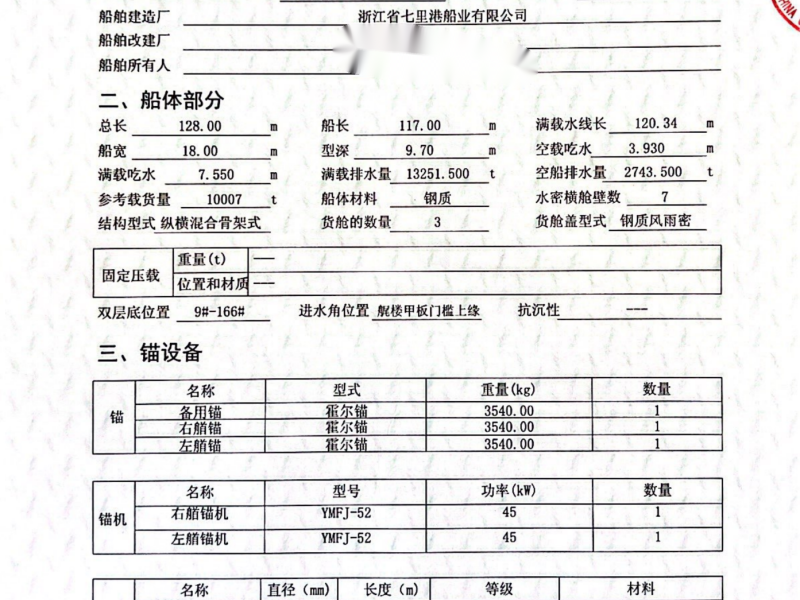 船舶建造厂 浙江省七里港船业有限公司
船舶改建厂
船舶所有人
二、船体部分
总长 128.00 m 船长 117.00 m 满载水线长 120.34 m
船宽 18.00 m 型深 9.70 m 空载吃水 3.930 m
满载吃水 7.550 m 满载排水量 13251.500 t 空船排水量 2743.500 t
参考载货量 10007 t 船体材料 钢质 水密横舱壁数 7
结构型式 纵横混合骨架式 货舱的数量 3 货舱盖型式 钢质风雨密
固定压载 重量(t) ---
位置和材质 ---
双层底位置 9#-166# 进水角位置 艉楼甲板门槛上缘 抗沉性 ---
三、锚设备
锚 名称 型式 重量(kg) 数量
备用锚 霍尔锚 3540.00 1
右艏锚 霍尔锚 3540.00 1
左艏锚 霍尔锚 3540.00 1
锚机 名称 型号 功率(kW) 数量
右艏锚机 YMFJ-52 45 1
左艏锚机 YMFJ-52 45 1
名称 直径(mm) 长度(m) 等级 材料